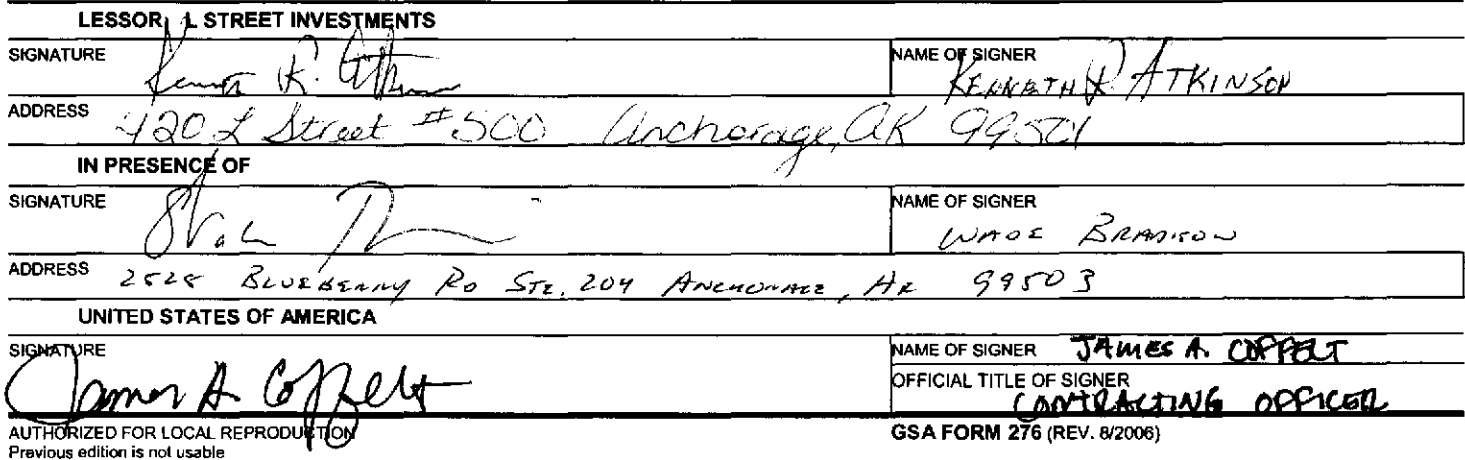 LESSOR, L STREET INVESTMENTS
SIGNATURE Kenneth R. Atkinson NAME OF SIGNER KENNETH R ATKINSON
ADDRESS 420 L Street #500 Anchorage, AK 99501
IN PRESENCE OF
SIGNATURE NAME OF SIGNER WADE BRADISON
ADDRESS 2525 BLUEBERRY RD STE. 204 ANCHORAGE, AK 99503
UNITED STATES OF AMERICA
SIGNATURE James A. Coppelt NAME OF SIGNER JAMES A. COPPELT
OFFICIAL TITLE OF SIGNER CONTRACTING OFFICER
AUTHORIZED FOR LOCAL REPRODUCTION GSA FORM 276 (REV. 8/2006)
Previous edition is not usable